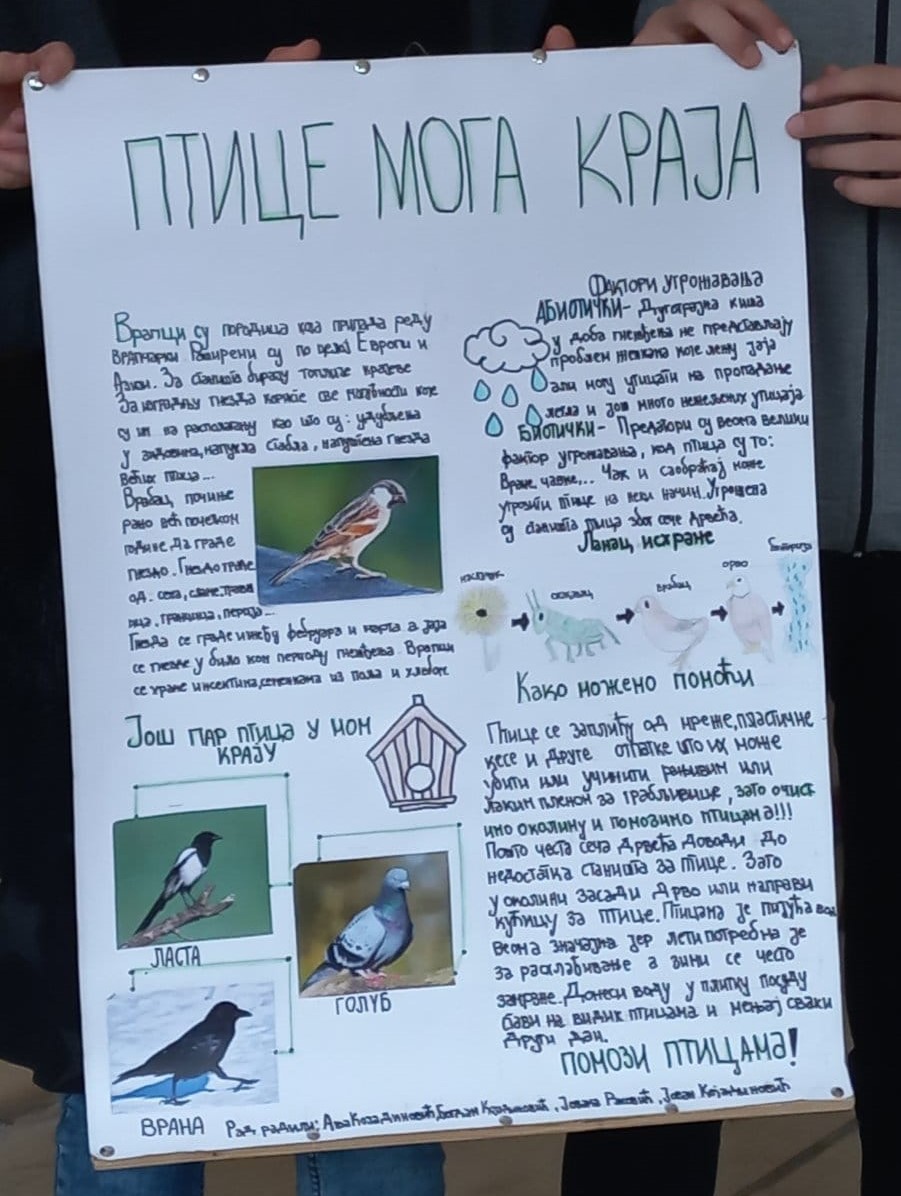 ПТИЦЕ МОГА КРАЈА
Врапци су породица која припада реду
врапчарки Раширени су по целој Европи и
Азији. За станиште бирају топлије крајеве
За изградњу гнезда користе све могућности које
су им на располагању као што су: удубљења
у зидовима, напукла стабла, напуштена гнезда
већих птица...
Врабац почиње
рано већ почетком
године да граде
гнездо. Гнездо граде
од: сена, сламе, трава
гранчица, перја...
Гнезда се граде између фебруара и марта а јаја
се гнезде у било ком периоду гнежђења. Врапци
се хране инсектима, семенкама из поља и хлебом
Још пар птица у мом
крају
ЛАСТА
ГОЛУБ
ВРАНА
Фактори угрожавања
АБИОТИЧКИ- Дуготрајна киша
у доба гнежђења не представљају
проблем женкама које лежу јаја
али могу утицати на пропадање
легла и још много нежељених утицаја
БИОТИЧКИ- Предатори су веома велики
фактор угрожавања, код птица су то:
Вране, чавке,... Чак и саобраћај може
угрозити птице на неки начин. Угрожена
су станишта птица због сече дрвећа.
Ланац исхране
маслачак
скакавац
врабац
орао
бактерија
Како можемо помоћи
Птице се заплићу од мреже, пластичне
кесе и друге отпатке што их може
убити или учинити рањивим или
лаким пленом за грабљивице, зато очист
имо околину и помозимо птицама!!!
Пошто честа сеча дрвећа доводи до
недостатка станишта за птице. Зато
у околини засади дрво или направи
кућицу за птице. Птицама је питућа вода
веома значајна јер лети потребна је
за расхлађивање а зими се често
замрзне. Донеси воду у плитку посуду
стави на видик птицама и мењај сваки
други дан.
ПОМОЗИ ПТИЦАМА!
Рад радили: